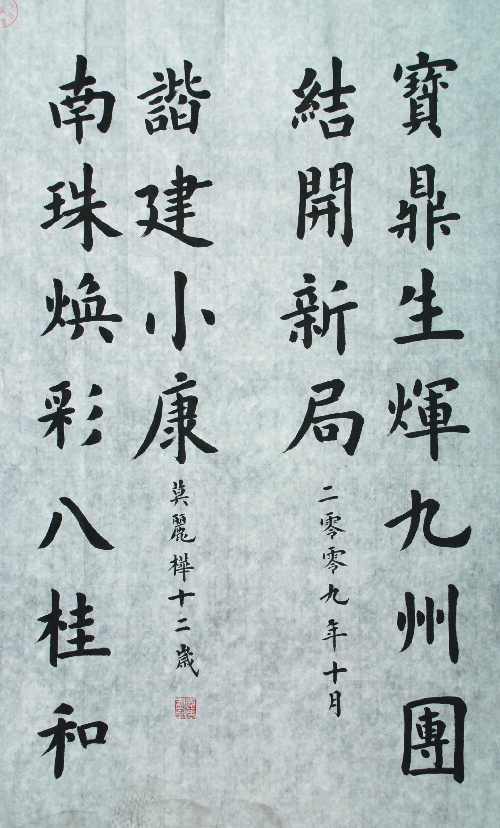 寶鼎生輝九州團
結開新局
二零零九年十月
南珠煥彩八桂和
諧建小康
莫麗樺十二歲